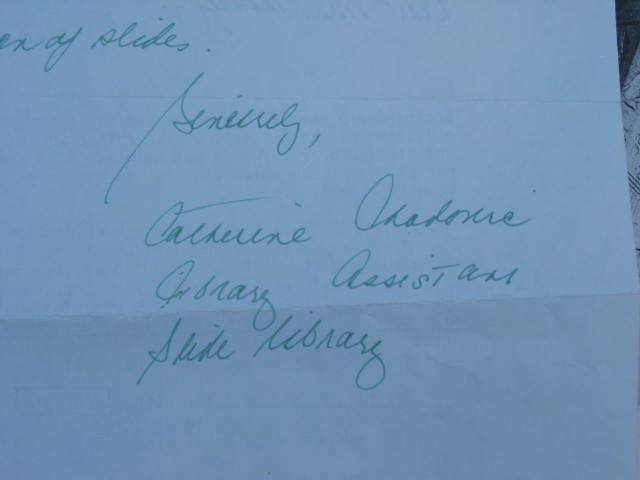 of slides.
Sincerely,
Catherine
Library Assistant
Slide Library